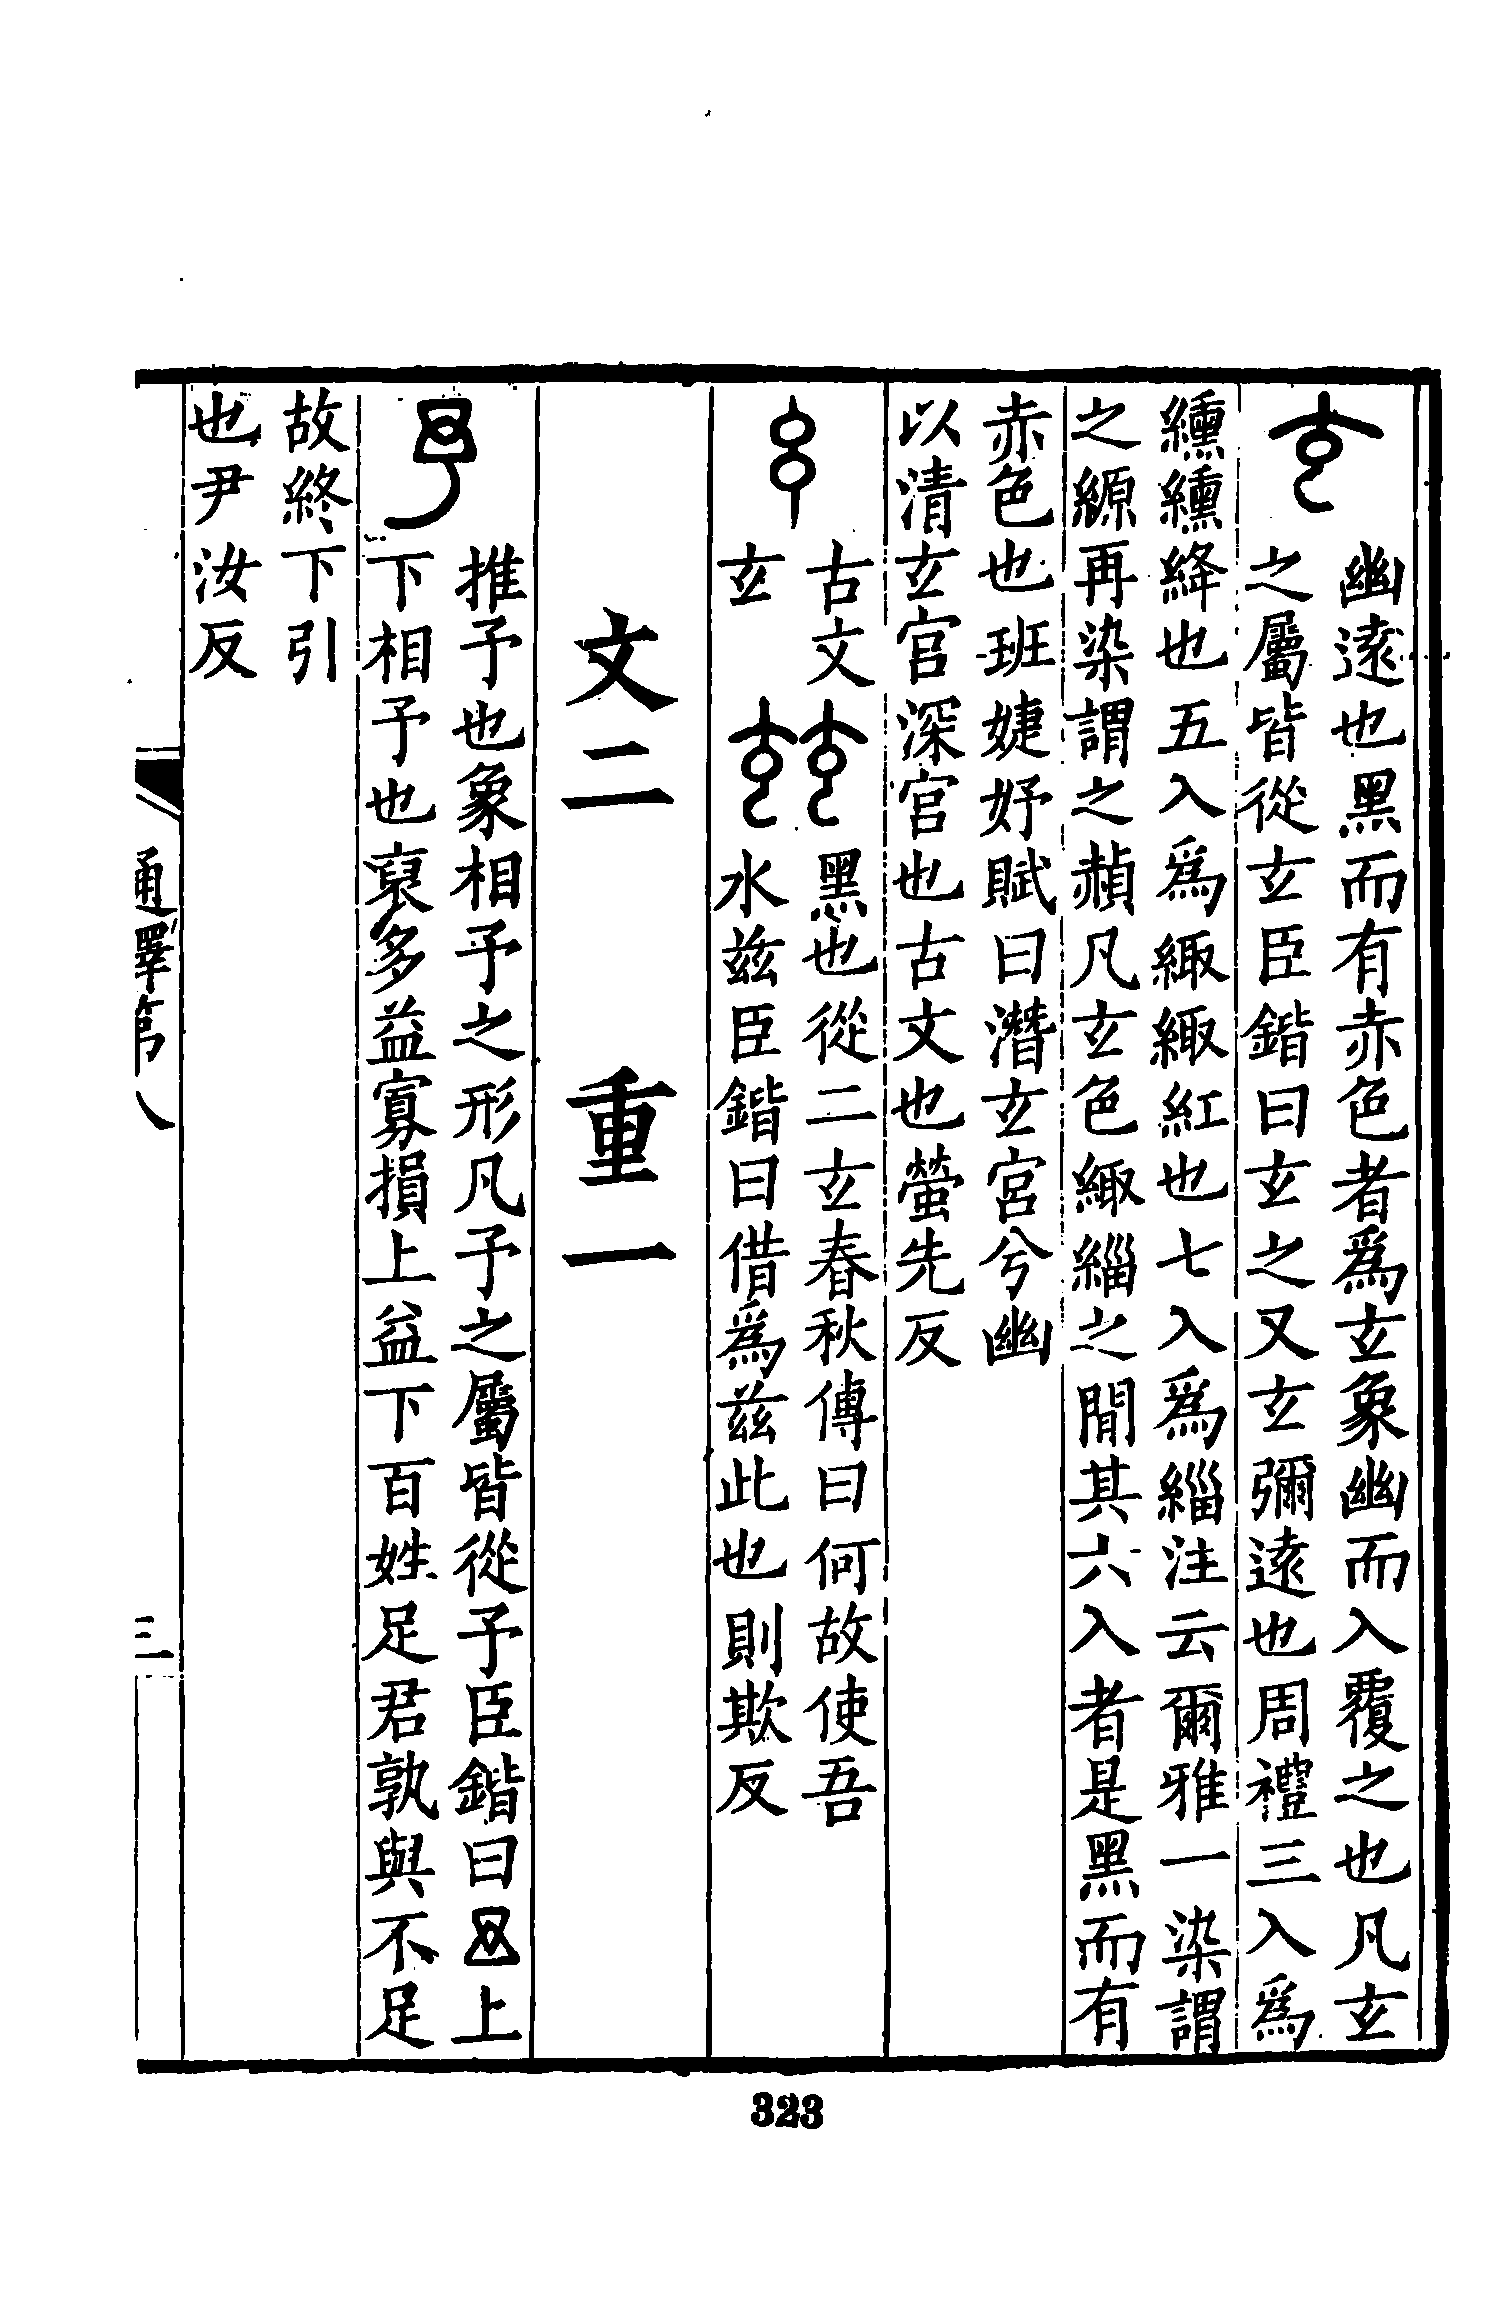 玄
幽遠也黑而有赤色者爲玄象幽而入覆之也凡玄
之屬皆從玄臣鍇曰玄之又玄彌遠也周禮三入爲
纁纁絳也五入爲緅緅紅也七入爲緇注云爾雅一染謂
之縓再染謂之赬凡玄色緅緇之閒其六入者是黑而有
赤色也班婕妤賦曰潛玄宮兮幽
以清玄宫深宫也古文也螢先反
古文
玄
玆
黑也從二玄春秋傳曰何故使吾
水茲臣鍇曰借爲茲此也則欺反
文二 重一
予
推予也象相予之形凡予之屬皆從予臣鍇曰上
下相予也裒多益寡損上益下百姓足君孰與不足
故終下引
也尹汝反
通釋第八
三
323